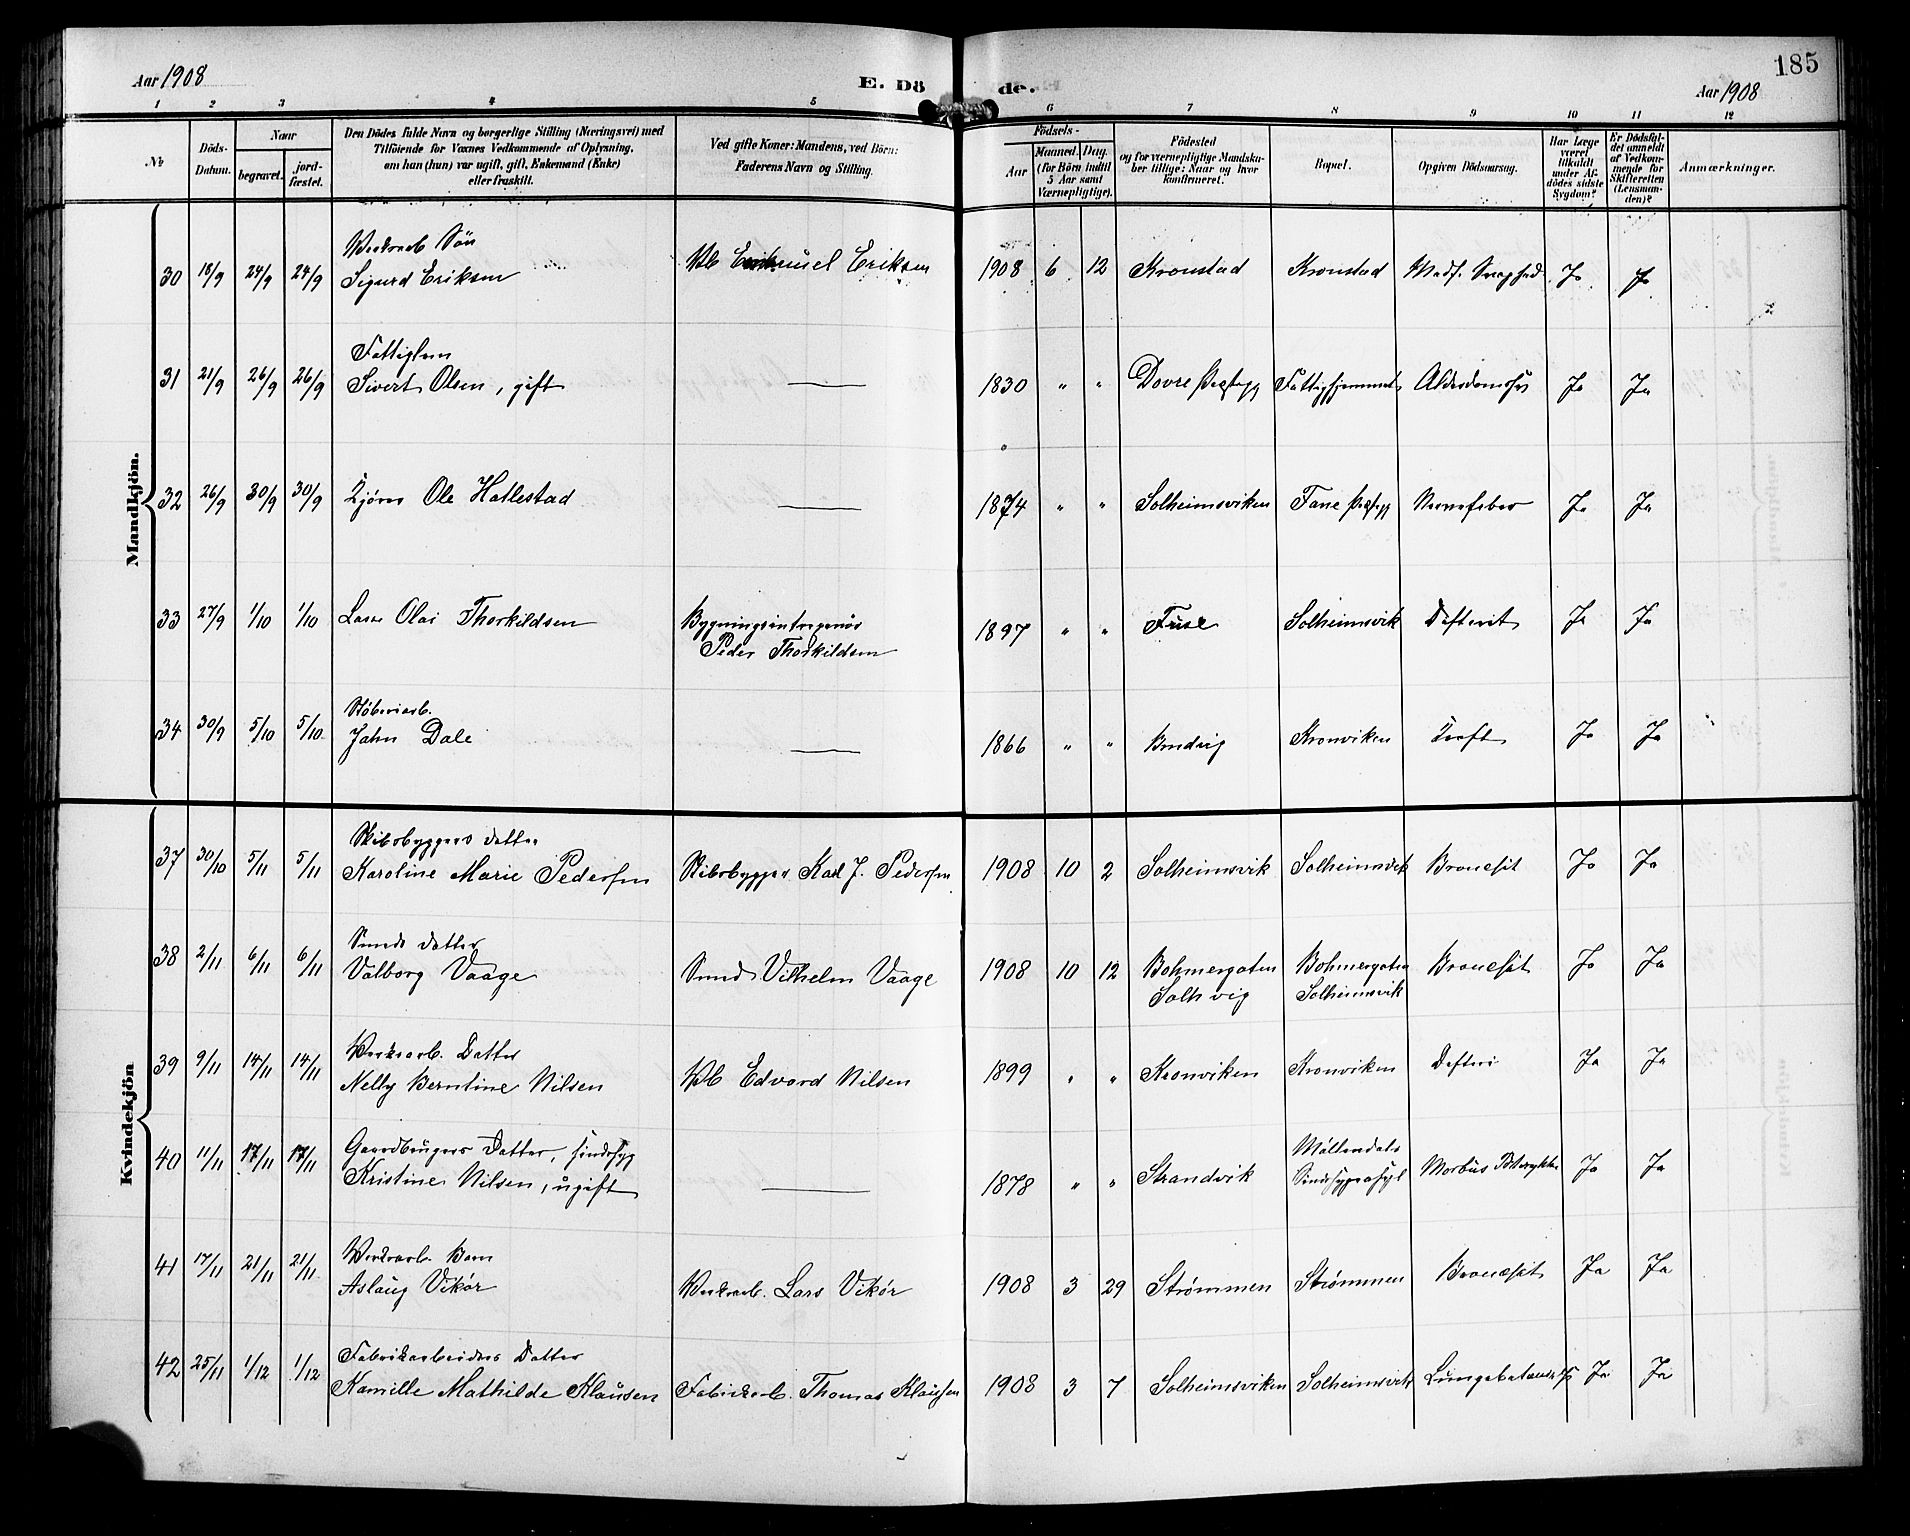 Aar 1908
E. Dö
de.
185
Aar 1908
1 2 3 4 5 6 7 8 9 10 11 12
No
Döds-
Datum.
Naar
begravet.
jord-
fæstet.
Den Dödes fulde Navn og borgerlige Stilling (Næringsvei) med
Tilföiende for Voxnes Vedkommende af Oplysning,
om han (hun) var ugift, gift, Enkemand (Enke)
eller fraskilt.
Ved gifte Koner: Mandens, ved Börn:
Faderens Navn og Stilling.
Födsels-
Aar
Maaned. Dag.
(for Börn indtil
5 Aar samt
Værnepligtige).
Födested
og for værnepligtige Mandska-
ber tillige: Naar og hvor
konfirmeret.
Bopæl.
Opgiven Dödsaarsag.
Har Læge
været
tilkaldt
under Af-
dödes sidste
Sygdom?
Er Dödsfal-
det anmeldt
af Vedkom-
mende for
Skifteretten
(Lensman-
den)?
Anmærkninger.
Mandkjön.
Værksarb Søn
30 18/9 24/9 24/9 Sigurd Eriksen
Eriksen 1908 6 12 Kronstad Kronstad Medf. Svaghed Ja Ja
Fattiglem
31 21/9 26/9 26/9 Sivert Olsen, gift
1830 " " Dovre Fattighjemmet Ja Ja
32 26/9 30/9 30/9 Ole Hatlestad
1874 " " Solheimsviken Fane Nervefeber Ja Ja
33 27/9 1/10 1/10 Lars Olai Thorkildsen
Bygningsentreprenør
Peder Thorkildsen
1897 " " Fuse Solheimsvik Difterit Ja Ja
Støberiarb.
34 30/9 5/10 5/10 John Dale
1866 " " Kronviken Kræft Ja Ja
Kvindekjön
Skibsbyggers Datter
37 30/10 5/11 5/11 Karoline Marie Pedersen Skibsbygger Karl J. Pedersen 1908 10 2 Solheimsvik Solheimsvik Ja Ja
Smeds Datter
38 2/11 6/11 6/11 Valborg Vaage Smed Vilhelm Vaage 1908 10 12 Bohmergaten Bohmergaten Ja Ja
Solhvig Solheimsvik
Værksarb. Datter
39 9/11 14/11 14/11 Nelly Berntine Nilsen Edvard Nilsen 1899 " " Kronviken Kronviken Difteri Ja Ja
Gaardbrugers Datter, sindssyg
40 11/11 17/11 17/11 Kristine Nilsen, ugift
1878 " " Strandvik Møllendals
Sindssygeasyl
Morbus Ja Ja
Værksarb. Barn
41 17/11 21/11 21/11 Aslaug Vikør Værksarb. Lars Vikør 1908 3 29 Strømmen Strømmen Ja Ja
Fabrikarbeiders Datter
42 25/11 1/12 1/12 Kamille Mathilde Klausen Fabrikarb. Thomas Klausen 1908 3 7 Solheimsviken Solheimsvik Lungebetændelse Ja Ja